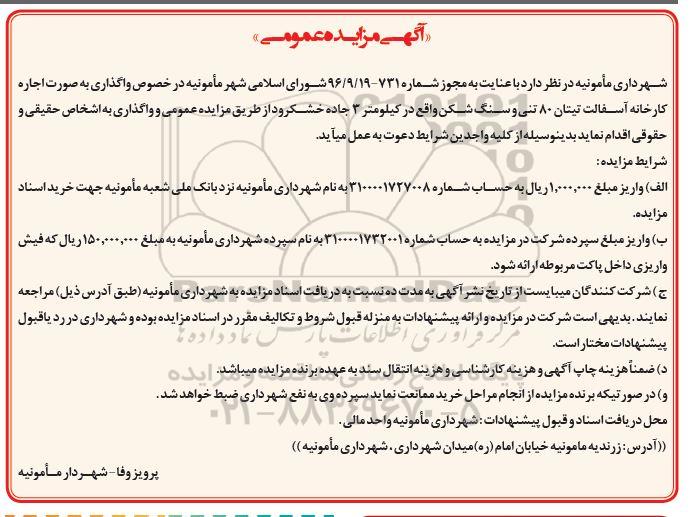 «آگهی مزایده عمومی»
شهرداری مأمونیه در نظر دارد با عنایت به مجوز شماره ۷۳۱-۹۶/۹/۱۹ شورای اسلامی شهر مأمونیه در خصوص واگذاری به صورت اجاره
کارخانه آسفالت تیتان ۸۰ تنی و سنگ شکن واقع در کیلومتر ۳ جاده خشکرود از طریق مزایده عمومی و واگذاری به اشخاص حقیقی و
حقوقی اقدام نماید بدینوسیله از کلیه واجدین شرایط دعوت به عمل میآید.
شرایط مزایده:
الف) واریز مبلغ ۱,۰۰۰,۰۰۰ ریال به حساب شماره ۳۱۰۰۰۰۱۷۲۷۰۰۸ به نام شهرداری مأمونیه نزد بانک ملی شعبه مأمونیه جهت خرید اسناد
مزایده.
ب) واریز مبلغ سپرده شرکت در مزایده به حساب شماره ۳۱۰۰۰۰۱۷۳۲۰۰۱ به نام سپرده شهرداری مأمونیه به مبلغ ۱۵۰,۰۰۰,۰۰۰ ریال که فیش
واریزی داخل پاکت مربوطه ارائه شود.
ج) شرکت کنندگان میبایست از تاریخ نشر آگهی به مدت ده نسبت به دریافت اسناد مزایده به شهرداری مأمونیه (طبق آدرس ذیل) مراجعه
نمایند. بدیهی است شرکت در مزایده و ارائه پیشنهادات به منزله قبول شروط و تکالیف مقرر در اسناد مزایده بوده و شهرداری در رد یا قبول
پیشنهادات مختار است.
د) ضمناً هزینه چاپ آگهی و هزینه کارشناسی و هزینه انتقال سند به عهده برنده مزایده میباشد.
و) در صورتیکه برنده مزایده از انجام مراحل خرید ممانعت نماید سپرده وی به نفع شهرداری ضبط خواهد شد.
محل دریافت اسناد و قبول پیشنهادات: شهرداری مأمونیه واحد مالی.
((آدرس: زرندیه مامونیه خیابان امام (ره) میدان شهرداری، شهرداری مأمونیه))
پرویز وفا - شهردار مأمونیه
مرکز فرآوری اطلاعات پارس نماد داده ها
پایگاه اطلاع رسانی مناقصه و مزایده
۰۲۱-۸۸۳۴۹۶۷۰-۵